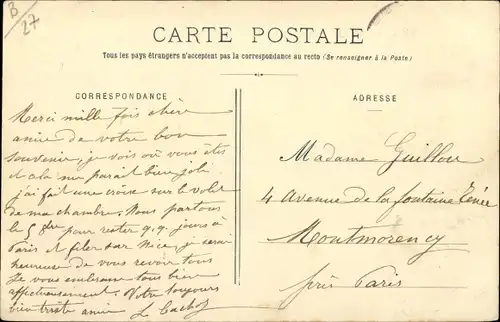 B/27
CARTE POSTALE
Tous les pays étrangers n'acceptent pas la correspondance au recto (Se renseigner à la Poste)
CORRESPONDANCE
ADRESSE
Merci mille fois chère
amie de votre bon
souvenir, je vois où vous êtes
et cela me parait bien joli
j'ai fait une croix sur le volet
de ma chambre. Nous partons
le 5 8bre pour rester q.q. jours à
Paris et filer sur Nice je serai
heureuse de vous revoir tous
Je vous embrasse tous bien
affectueusement. Votre toujours
bien triste amie
Madame Guillou
4 Avenue de la fontaine
Montmorency
près Paris